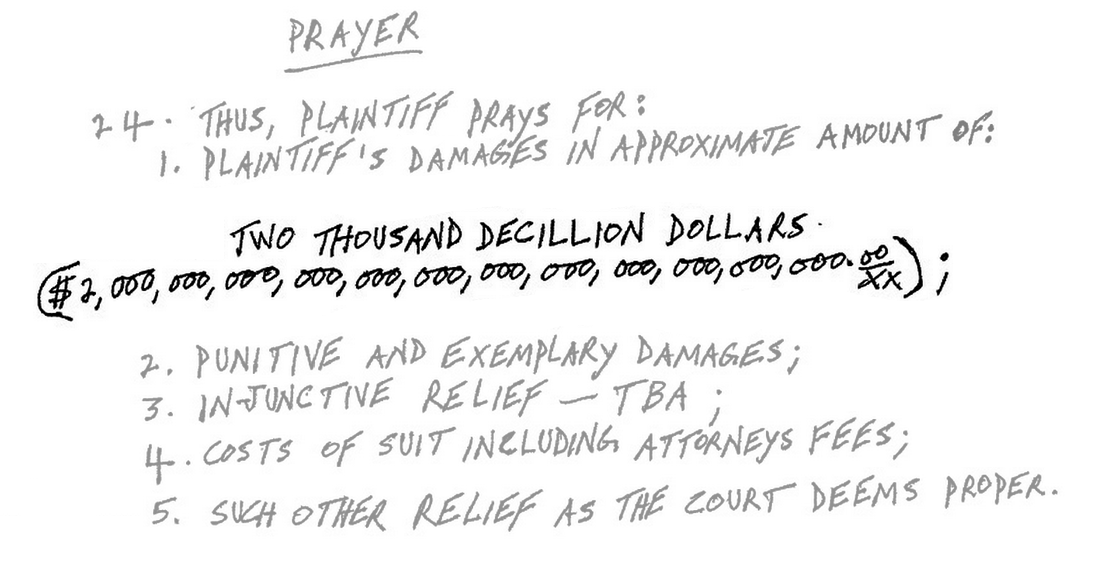 PRAYER
24. THUS, PLAINTIFF PRAYS FOR:
1. PLAINTIFF'S DAMAGES IN APPROXIMATE AMOUNT OF:
TWO THOUSAND DECILLION DOLLARS.
($2,000,000,000,000,000,000,000,000,000,000,000,000.00/XX);
2. PUNITIVE AND EXEMPLARY DAMAGES;
3. INJUNCTIVE RELIEF – TBA;
4. COSTS OF SUIT INCLUDING ATTORNEYS FEES;
5. SUCH OTHER RELIEF AS THE COURT DEEMS PROPER.